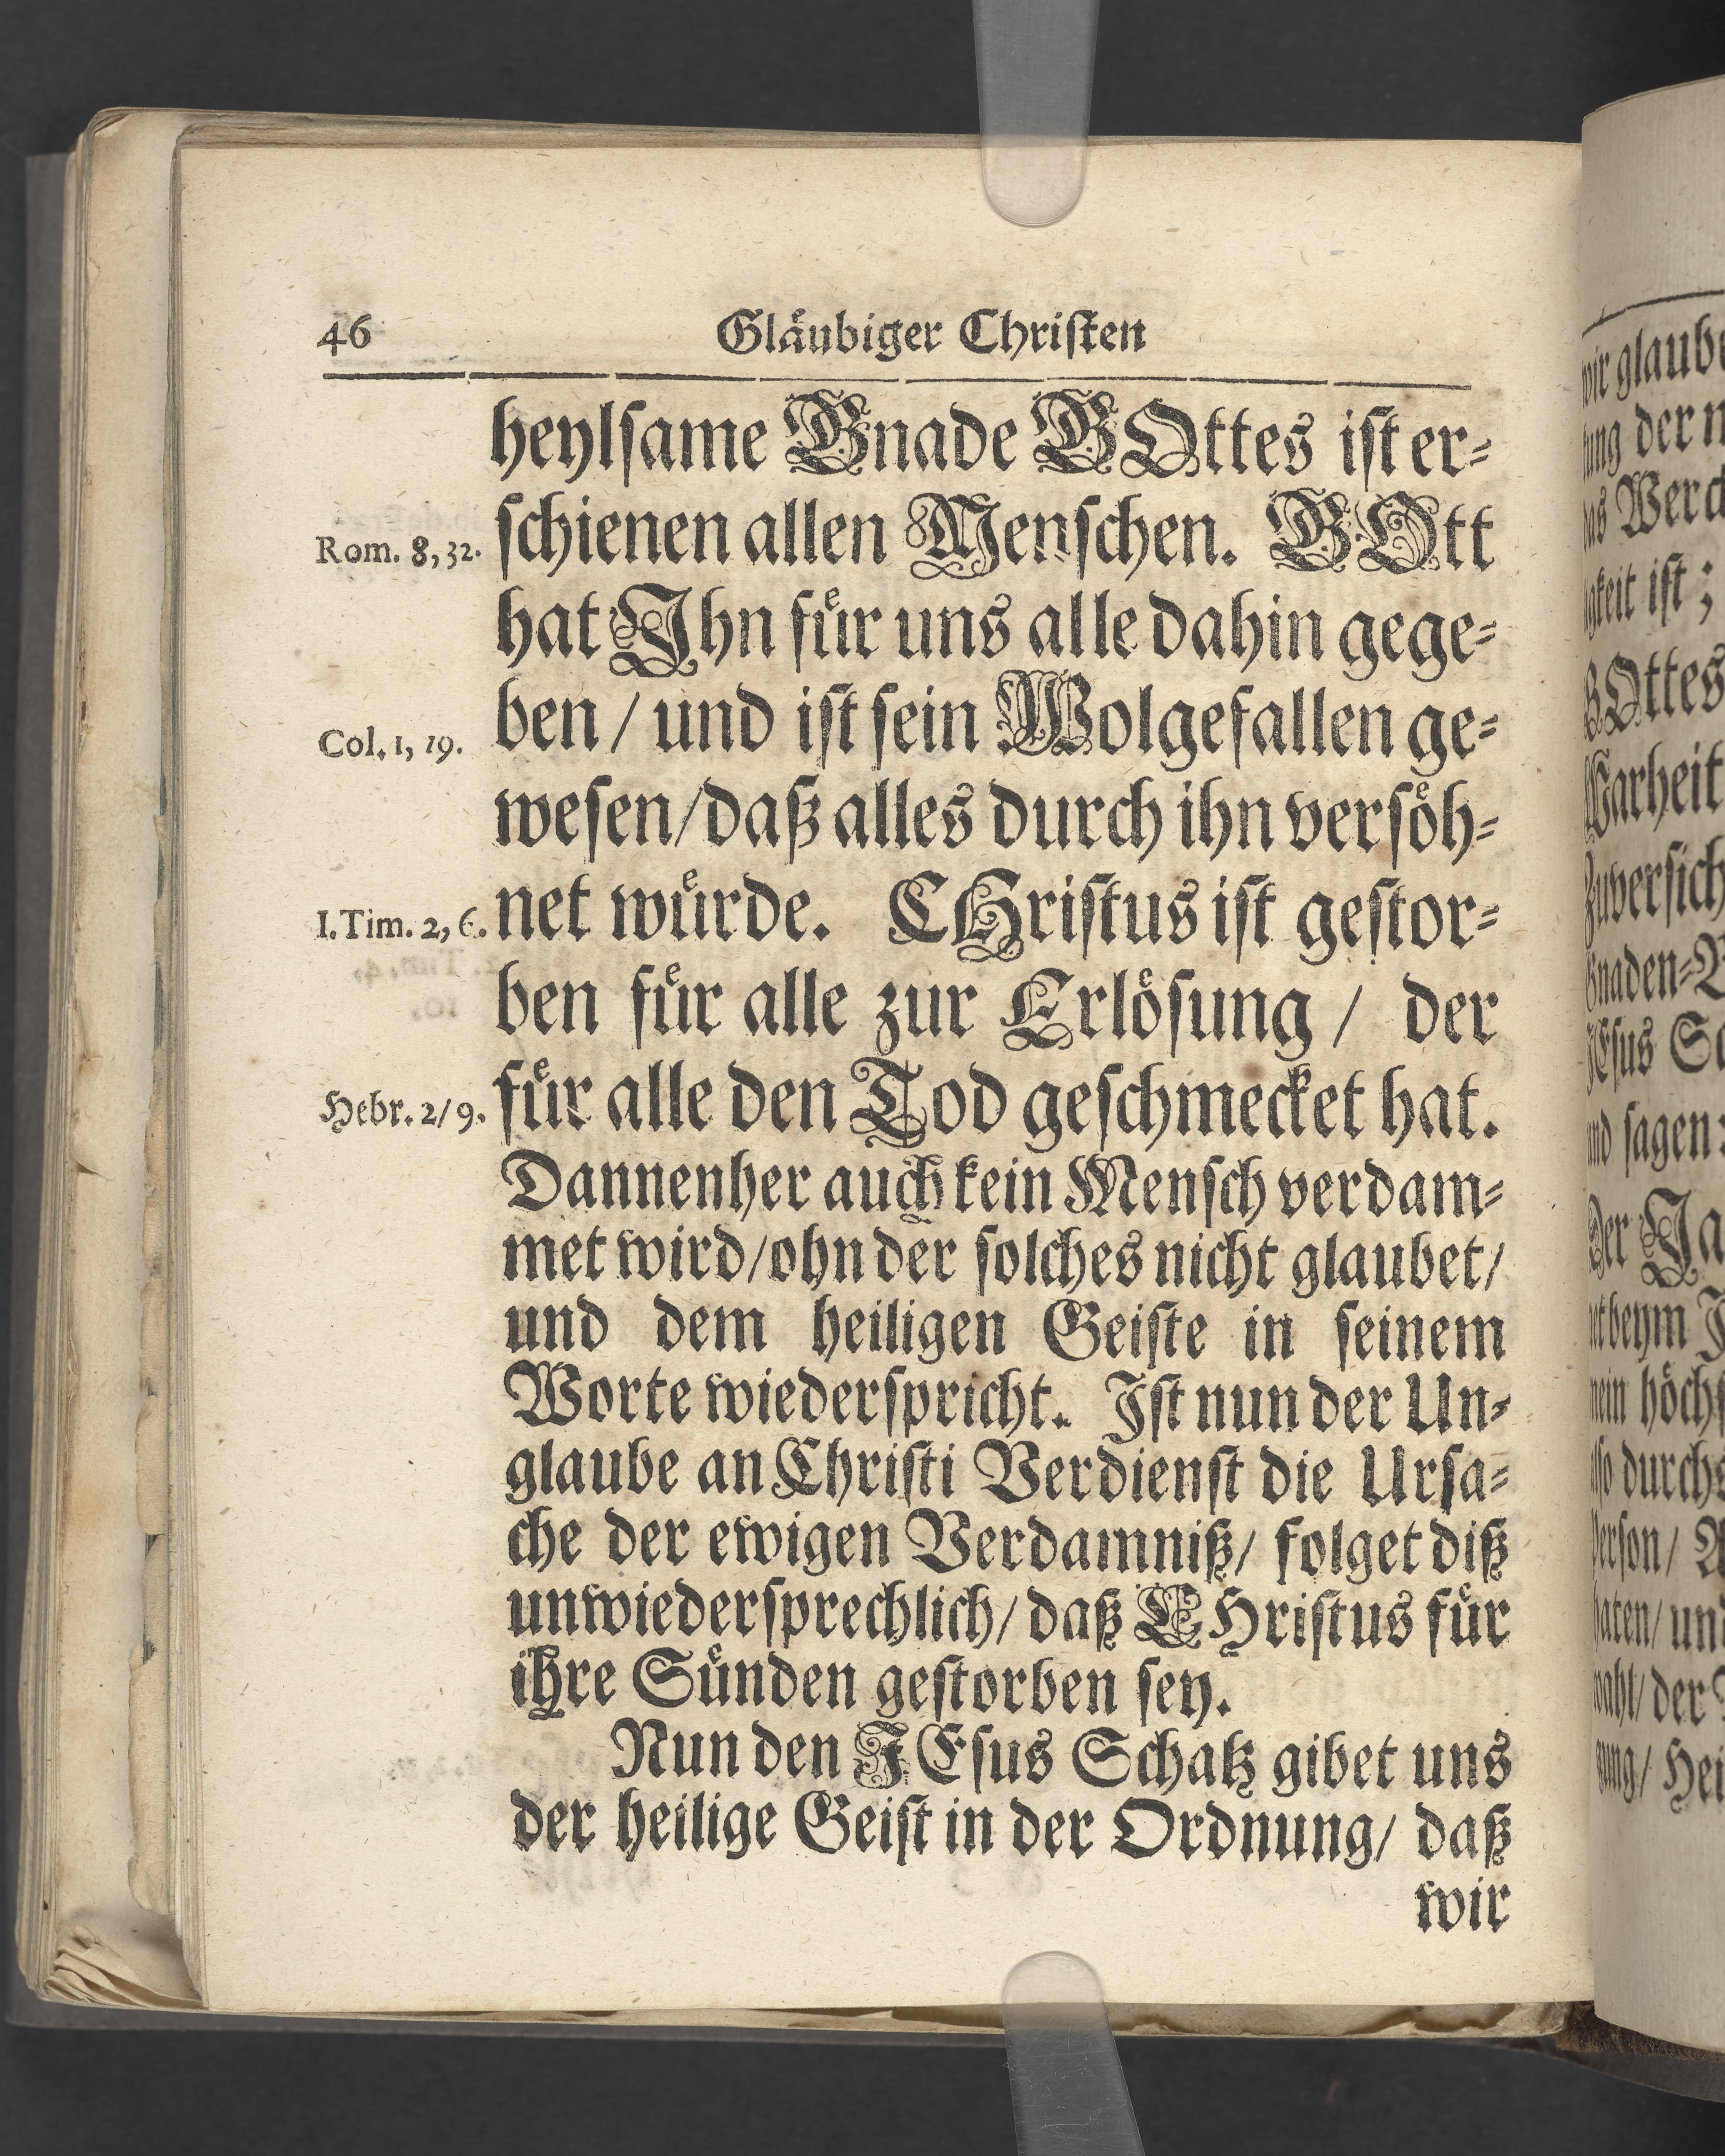 46 Gläubiger Christen
heylsame Gnade GOttes ist er-
schienen allen Menschen. GOtt
Rom. 8, 32.
hat Ihn für uns alle dahin gege-
ben / und ist sein Wolgefallen ge-
Col. 1, 19.
wesen/daß alles durch ihn versöh-
net würde. CHristus ist gestor-
I. Tim. 2, 6.
ben für alle zur Erlösung / der
für alle den Tod geschmecket hat.
Hebr. 2/9.
Dannenher auch kein Mensch verdam-
met wird/ohn der solches nicht glaubet/
und dem heiligen Geiste in seinem
Worte wiederspricht. Ist nun der Un-
glaube an Christi Verdienst die Ursa-
che der ewigen Verdamniß/ folget diß
unwiedersprechlich/ daß CHristus für
ihre Sünden gestorben sey.
Nun den JEsus Schatz gibet uns
der heilige Geist in der Ordnung/ daß
wir
glaub
der
Werck
ist ;
GOttes
sagen:
Der
beym
höch
durch
Person/
und
der